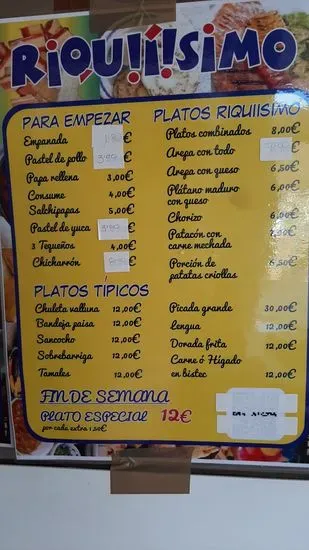 RIQUÍÍÍSIMO
PARA EMPEZAR
Empanada €
Pastel de pollo €
Papa rellena 3,00€
Consume 4,00€
Salchipapas 5,00€
Pastel de yuca €
3 Tequeños 4,00€
Chicharrón €
PLATOS RIQUIISIMO
Platos combinados 8,00€
Arepa con todo €
Arepa con queso 6,50€
Plátano maduro 6,00€
con queso
Chorizo 6,00€
Patacón con
carne mechada
Porción de 6,50€
patatas criollas
PLATOS TÍPICOS
Chuleta valluna 12,00€
Bandeja paisa 12,00€
Sancocho 12,00€
Sobrebarriga 12,00€
Tamales 12,00€
Picada grande 30,00€
Lengua 12,00€
Dorada frita 12,00€
Carne ó Hígado
en bistec 12,00€
FIN DE SEMANA
PLATO ESPECIAL 12€
por cada extra 1,50€